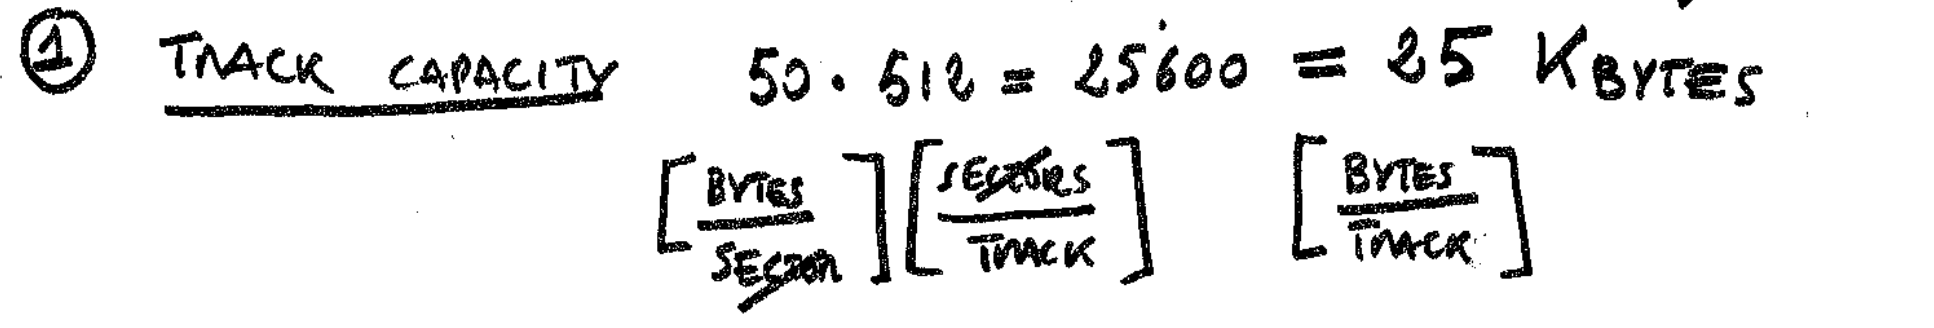 ① TRACK CAPACITY 50 · 512 = 25'600 = 25 KBYTES
[BYTES/SECTOR] [SECTORS/TRACK] [BYTES/TRACK]